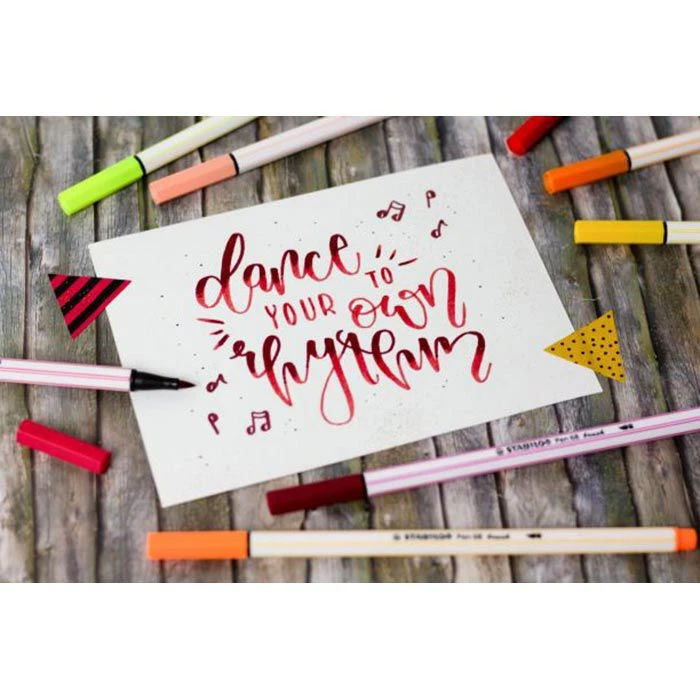 dance
TO
YOUR own
rhythm
STABILO Pen 68 brush
STABILO Pen 68 brush